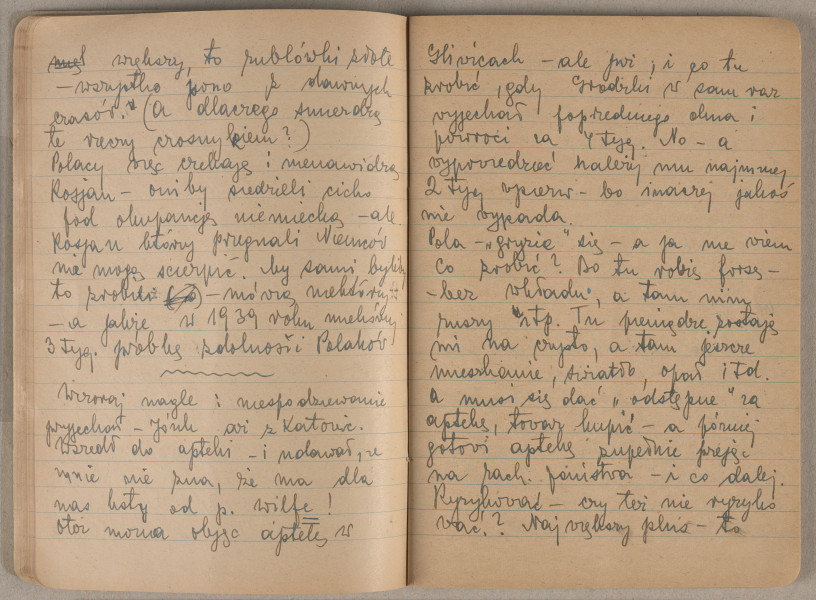 większy, to rublówki
– wszystko jono z dawnych
czasów." (a dlaczego śmierdzą
te rzeczy czosnykiem?)
Polacy więc czekają i nienawidzą
Rosjan – oni by siedzieli cicho
pod okupancją niemiecką – ale
Rosjan którzy przegnali Niemców
nie mogą ścierpić. My sami byliby
to zrobili – mówią niektórzy
– a jakże w 1939 roku mieliśmy
3 tyg. próbkę zdolności Polaków
Wczoraj nagle i niespodziewanie
przyjechał – Józik z Katowic.
Wszedł do apteki – i udawał, że
mnie nie zna, że ma dla
nas listy od p. Wilfe!
Otóż można objąć aptekę w
Gliwicach – ale już; i co tu
zrobić, gdy Grodzki w sam raz
wyjechał poprzedniego dnia i
powróci za 4 tyg. No – a
wypowiedzieć należy mu najmniej
2 tyg wpierw – bo inaczej jakoś
nie wypada.
Pola – „gryzie" się – a ja nie wiem
co zrobić? Bo tu robię forsę –
– bez wkładu, a tam
itp. Tu pieniądze zostają
mi na czysto, a tam jeszcze
mieszkanie, światło, opał itd.
a musi się dać „odstępne" za
aptekę, towar kupić – a później
gotowi aptekę zupełnie przejąć
na rach. państwa – i co dalej.
Ryzykować – czy też nie ryzyko
wać? Największy plus – to